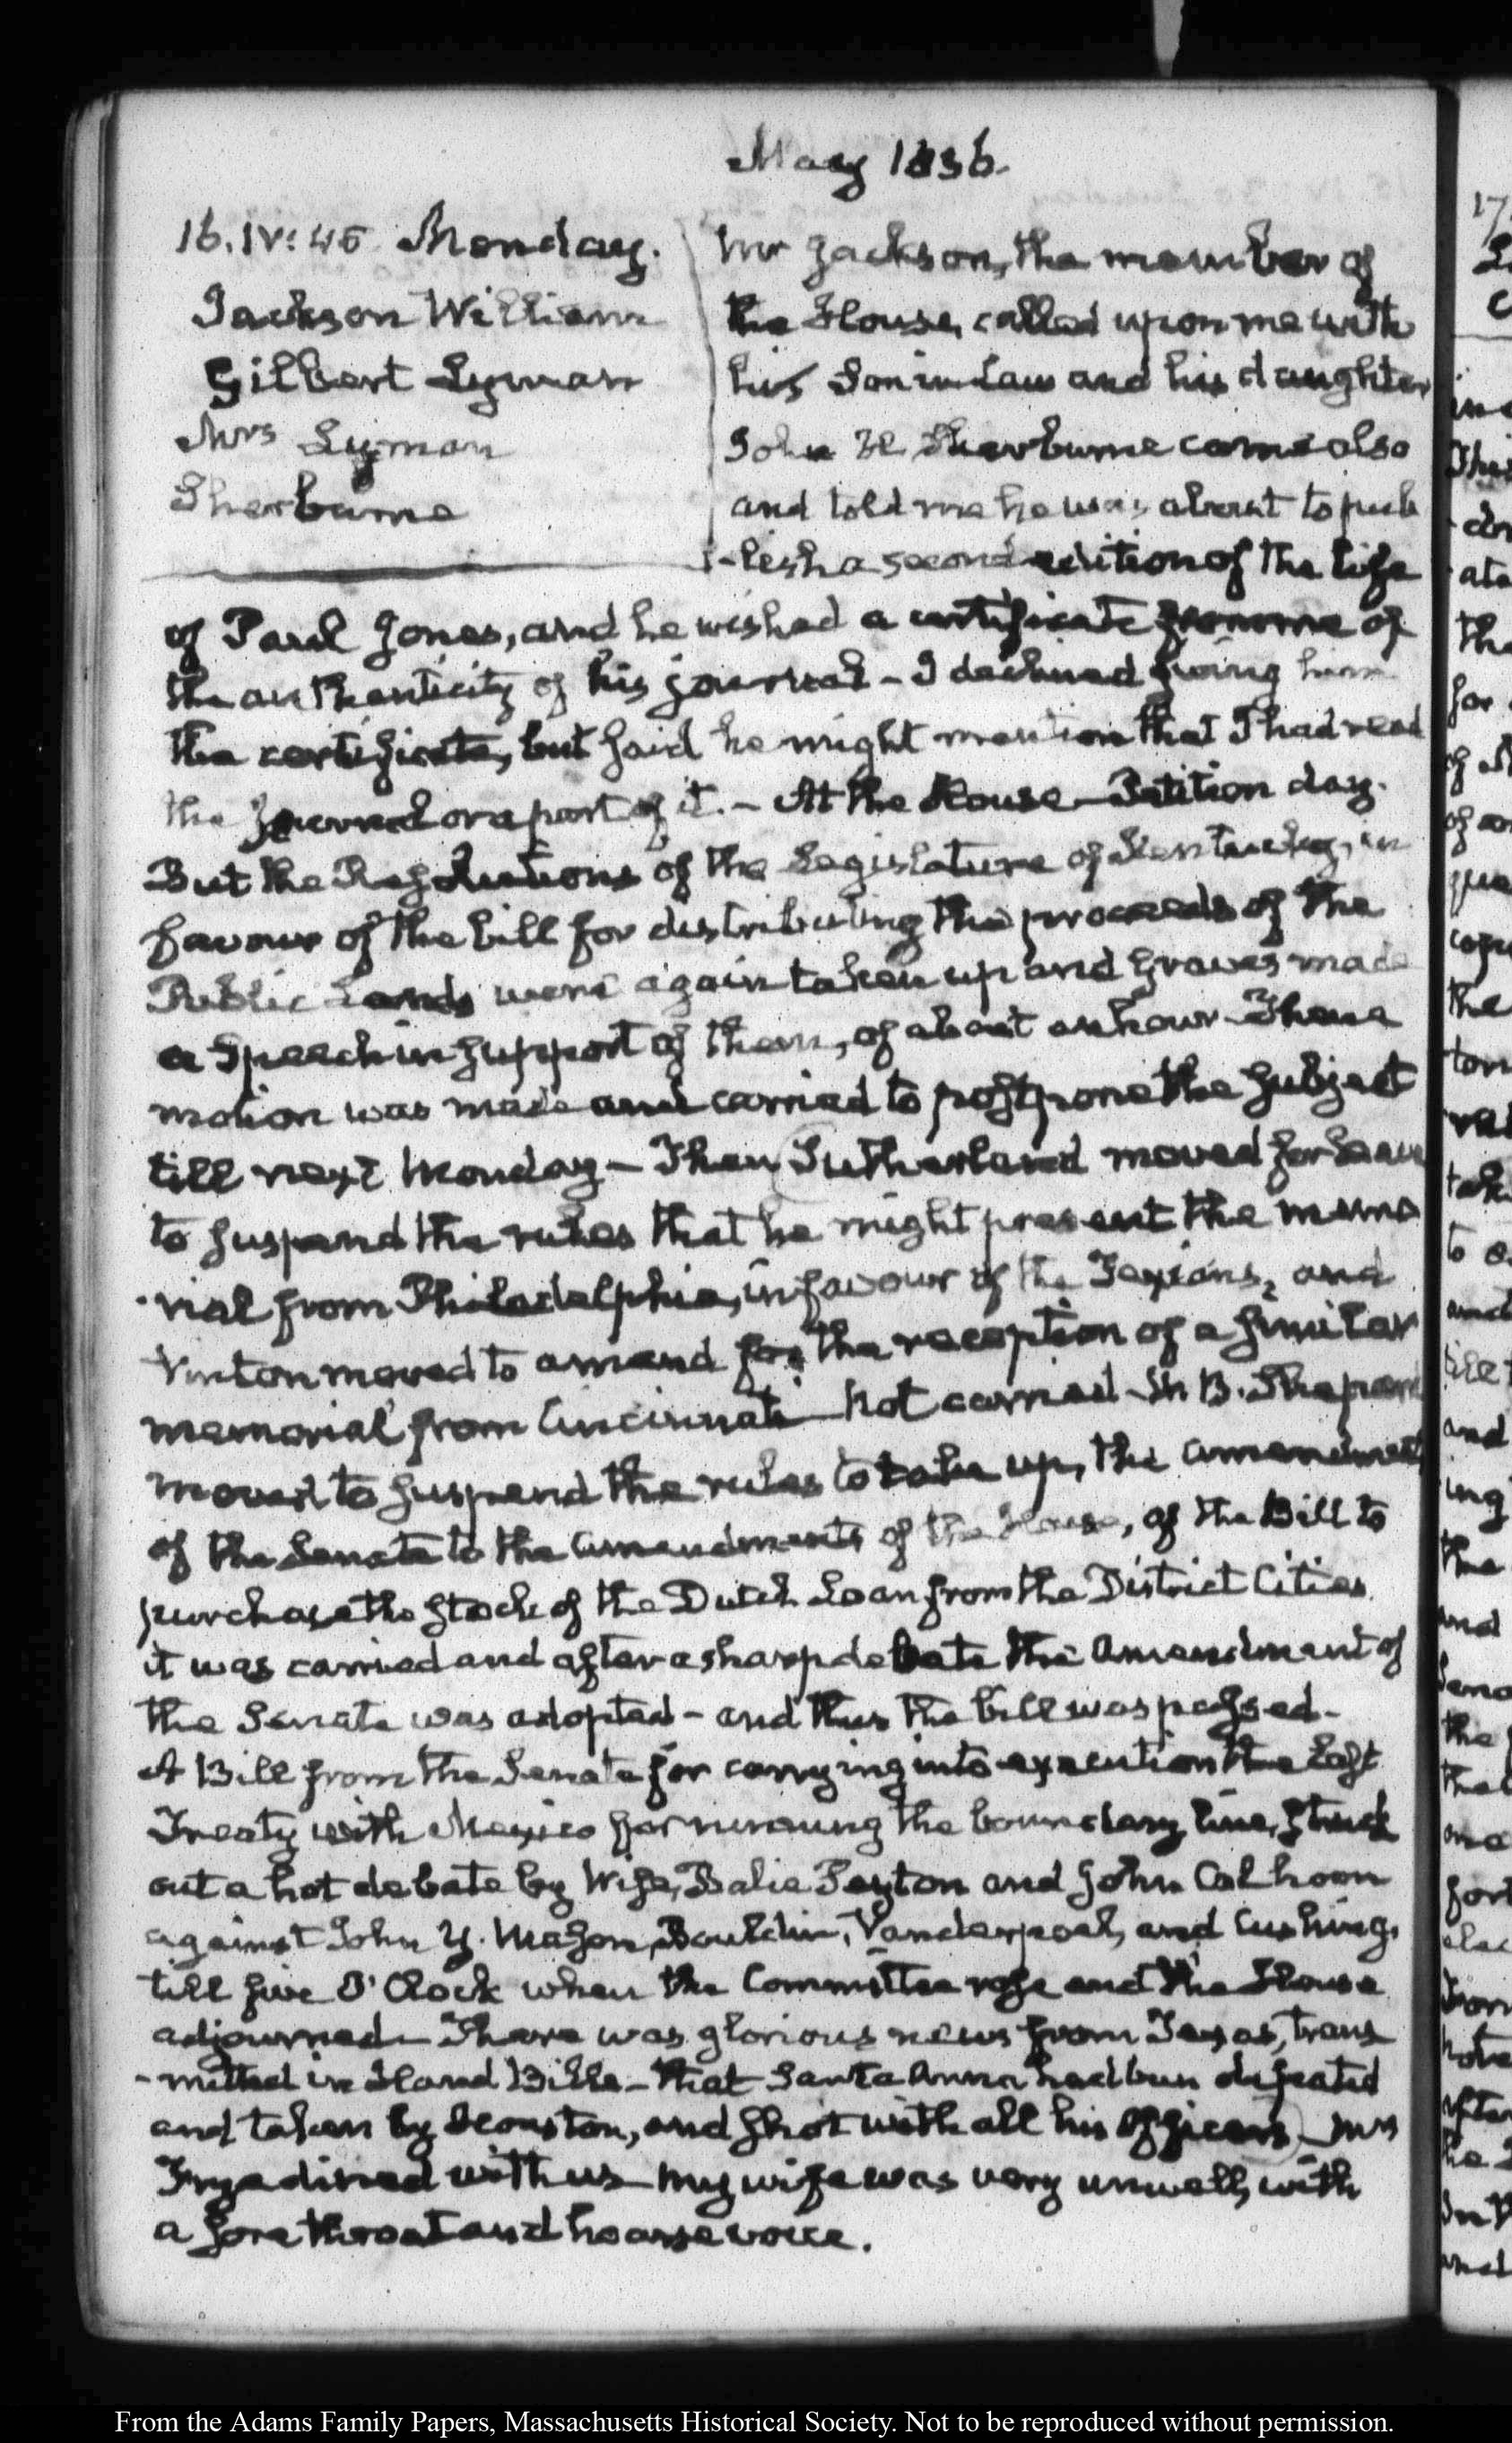 May 1836.
16. IV: 45 Monday.
Jackson William
Gilbert Lyman
Mrs Lyman
Sherburne
Mr Jackson, the member of
the House, called upon me with
his Son in Law and his daughter
John H Sherburne came also
and told me he was about to pub
-lish a second edition of the life
of Paul Jones, and he wished a certificate from me of
the authenticity of his journal - I declined giving him
the certificate, but said he might mention that I had read
the Journal or a part of it. - At the House - Petition day.
But the Resolutions of the Legislature of Kentucky, in
favour of the bill for distributing the proceeds of the
Public Lands were again taken up and Graves made
a Speech in support of them, of about an hour - Then a
motion was made and carried to postpone the subject
till next Monday - Then Sutherland moved for leave
to suspend the rules that he might present the memo
-rial from Philadelphia, in favour of the Texians, and
Vinton moved to amend for the reception of a similar
memorial from Cincinnati - Not carried - W. B. Shepard
moved to suspend the rules to take up, the amendment
of the Senate to the amendments of the House, of the Bill to
purchase the stock of the Dutch Loan from the District Cities
it was carried and after a sharp debate the amendment of
the Senate was adopted - and thus the bill was passed -
A Bill from the Senate for carrying into execution the last
Treaty with Mexico for running the boundary line, struck
out a hot debate by Wise, Balie Peyton and John Calhoon
against John Y. Mason, Bouldin, Vanderpoel, and Cushing,
till five O'Clock when the Committee rose and the House
adjourned - There was glorious news from Texas, trans
-mitted in Hand Bills - that Santa Anna had been defeated
and taken by Houston, and shot with all his Officers - Mrs
Frye dined with us - my wife was very unwell, with
a sore throat and hoarse voice.
From the Adams Family Papers, Massachusetts Historical Society. Not to be reproduced without permission.